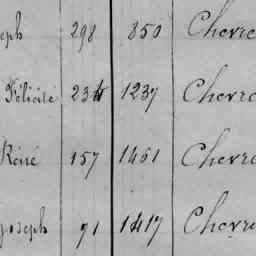 eph 298 850 Chevre
Félicité 234 1237 Chevre
Réné 157 1461 Chevre
Joseph 71 1417 Chevre